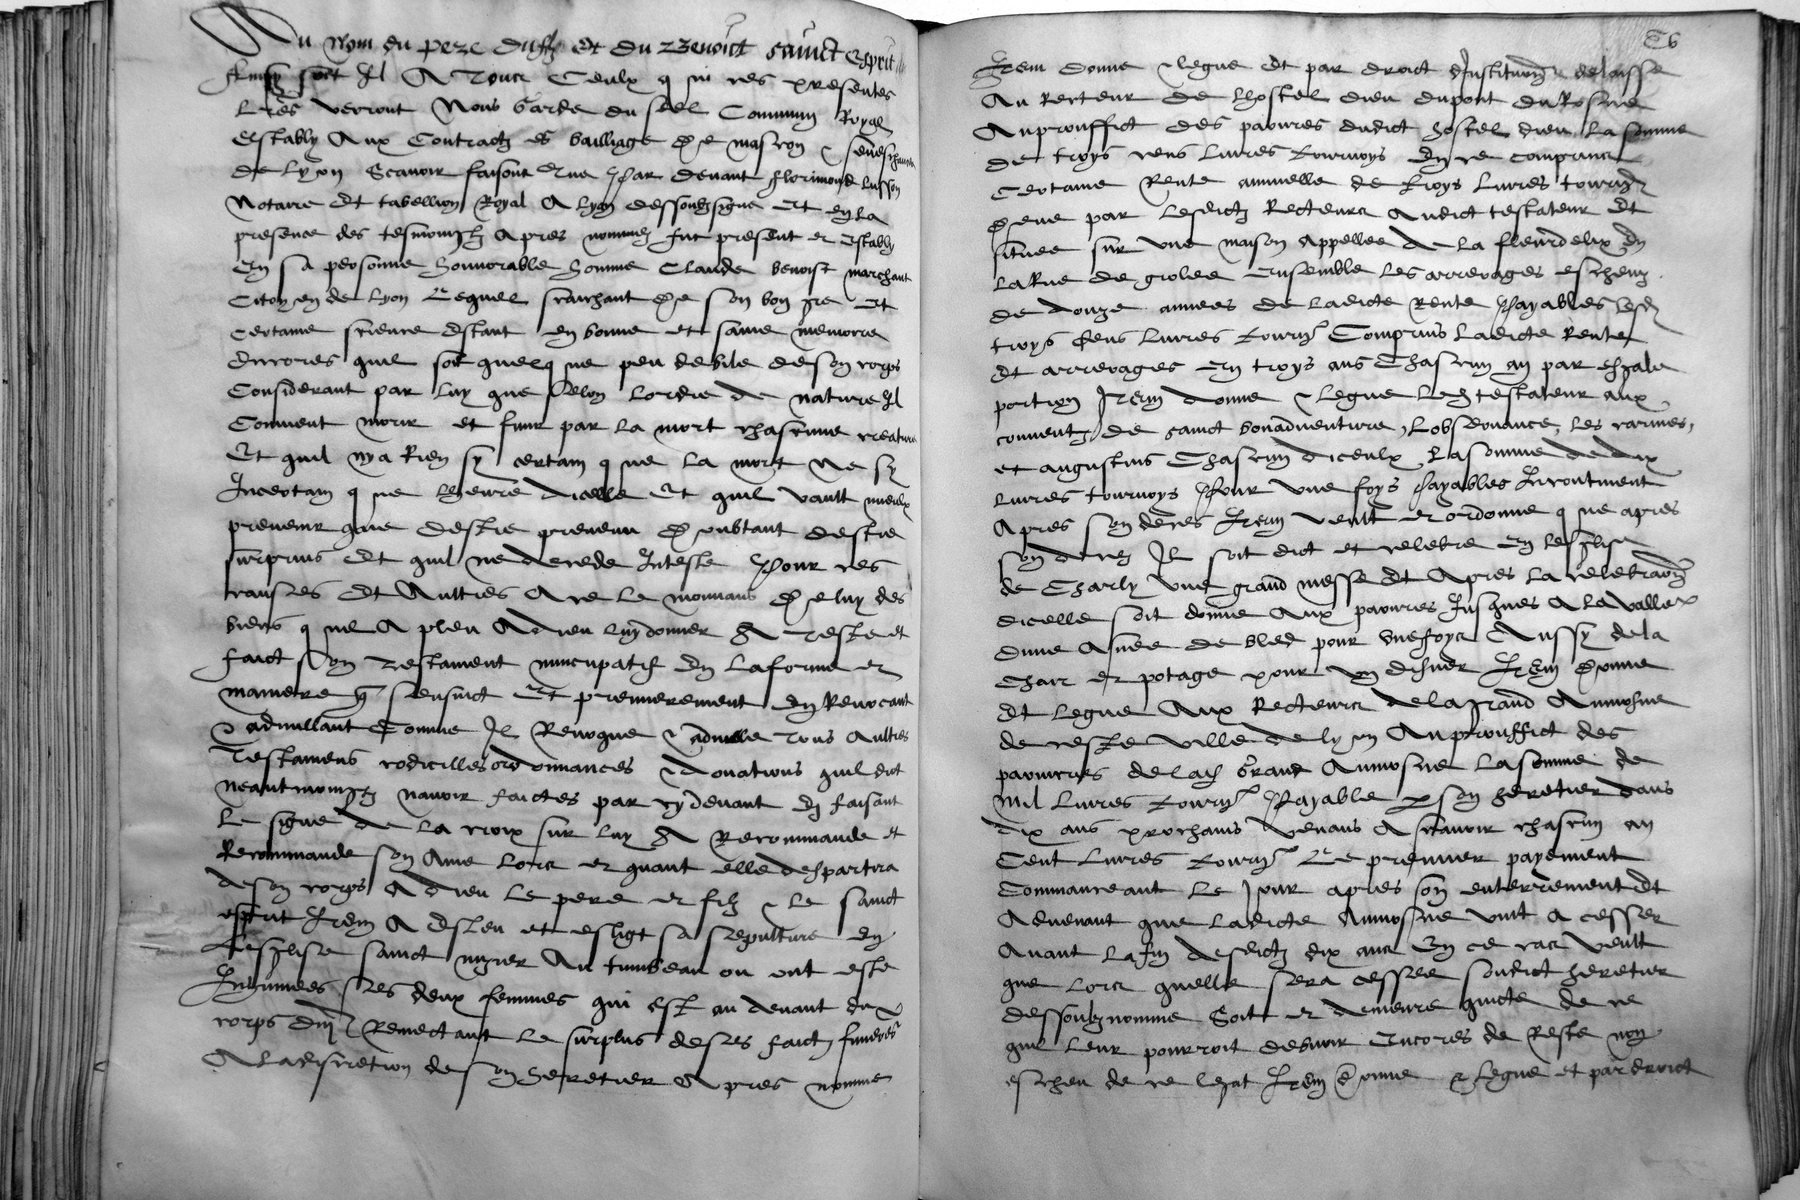 Au nom du pere du filz et du benoict sainct esprit
Ainsy soit il A tous ceulx qui ces presentes
lres verront Nous garde du seel commun Royal
estably aux contractz es bailliage de mascon & seneschaulcee
de lyon scavoir faisons que par devant florimond lusson
Notaire et tabellion Royal A lyon dessoubzsigne et en la
presence des tesmoingtz apres nommez fut present et estably
en sa personne honnorable homme Claude benoist marchant
Citoyen de lyon Lequel saichant de son bon gre et
certaine science estant en bonne et saine memoire
encores quil soit quelque peu debile de son corps
Considerant par luy que selon lordre de nature Il
Convient morir et finir par la mort chascune creature
Et quil nya Rien sy certain que la mort Ne sy
Incertain que lheure dicelle Et quil vault mieulx
prevenir que destre prevenu doubtant destre
surprins Et quil ne decede Inteste Pour ces
causes Et Aultres A ce le mouvans de luy des
biens que A pleu A dieu luy donner A teste et
faict son testament nuncupatif En la forme et
maniere q sensuict Et premierement En Revocant
& adnullant Comme Il Revoque & adnulle tous Aultres
testamens codicilles ordonnances & donations quil dict
neantmoingtz navoir faictes par cy devant En faisant
le signe de la croix sur luy A Recommande et
Recommande son Ame lors et quant elle despartira
de son corps A dieu le pere et filz & le sainct
esperit Item A Esleu et eslist sa sepulture En
lesglise sainct nizier Au tumbeau ou ont este
Inhumees ses deux femmes qui est au devant du
corps dni Remectant le surplus de ses faictz funeres
A la discretion de son heretier Apres nomme
Item donne & legue Et par droict dInstitution delaisse
Au Recteur de lhostel dieu du pont du Rosne
Au prouffict des pauvres dudict hostel dieu la somme
de troys cens livres tournoys En ce comprins
Certaine Rente annuelle de troys livres tourns
deue par lesdictz Recteurs Audict testateur Et
situee sur une maison Appellee de la fleur de lix En
la Rue de grolee ensemble les arrerages escheuz
de douze annees de ladicte Rente Payables lesd
troys Cens livres tourns Comprins ladicte Rente
Et arrerages en troys ans Chascun an par esgale
portion Item donne & legue led testateur aux
conventz de sainct bonadventure, lobservance, les carmes,
et augustins Chascun diceulx la somme de dix
livres tournoys Pour une foys Payables Incontinent
Apres son deces Item veult et ordonne que apres
son deces Il soit dict et celebre En lesglise
de Charly une grand messe Et Apres la celebration
dicelle soit donne Aux pauvres Jusques A la valleur
dune Asnee de bled pour une foys Aussy de la
Chair et potage pour un disner Item donne
Et legue Aux Recteurs de la grand Aumosne
de ceste ville de lyon Au prouffict des
pauvres de lad grand Aumosne la somme de
mil livres tourns Payable p son heretier dans
dix ans prochains venans A scavoir chascun an
Cent livres tourns Le premier payement
Commanceant le jour apres son enterrement Et
Advenant que ladicte Aumosne vint a cesser
Avant la fin desdictz dix ans En ce cas veult
que lors quelle sera cessee sondict heretier
dessoubz nomme soit et demeure quicte de ce
quil leur pourroit debvoir Encores de Reste non
escheu de ce legat Item donne & legue et par droict